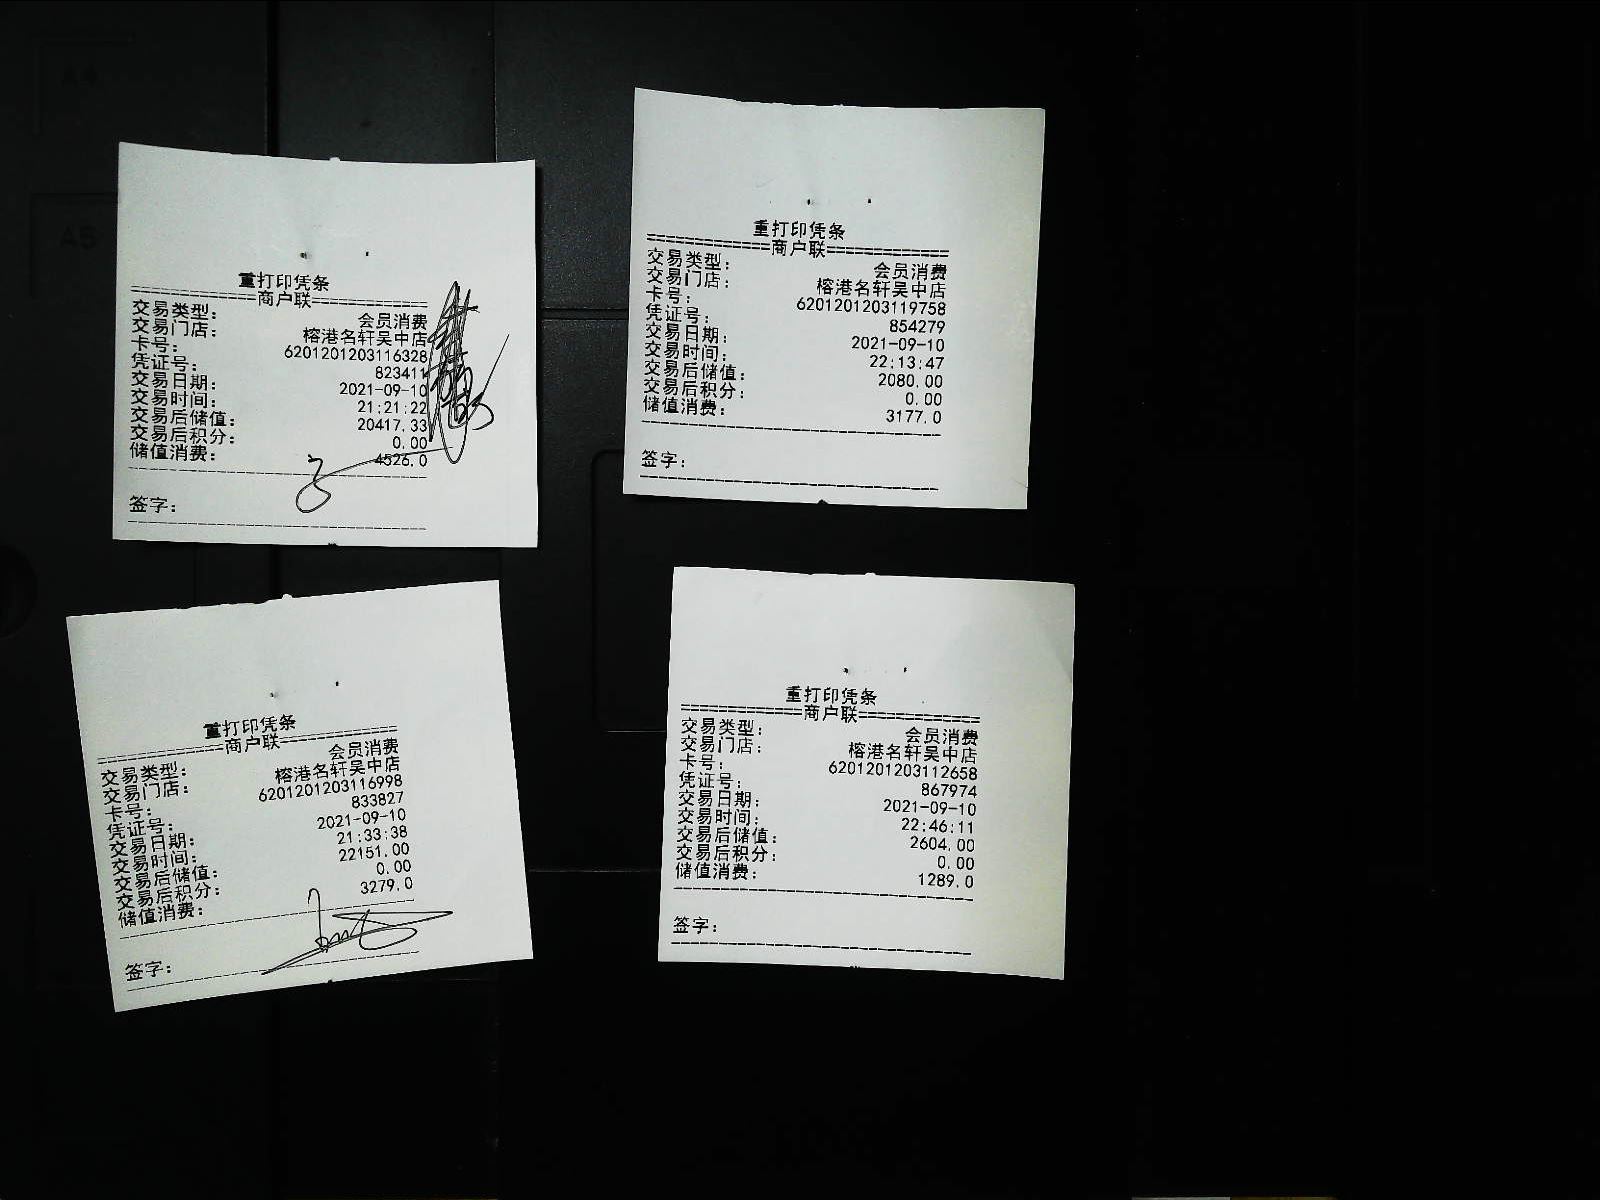 重打印凭条
================商户联================
交易类型： 会员消费
交易门店： 榕港名轩吴中店
卡号： 6201201203116328
凭证号： 823411
交易日期： 2021-09-10
交易时间： 21:21:22
交易后储值： 20417.33
交易后积分： 0.00
储值消费： 4526.0
签字：
重打印凭条
================商户联================
交易类型： 会员消费
交易门店： 榕港名轩吴中店
卡号： 6201201203119758
凭证号： 854279
交易日期： 2021-09-10
交易时间： 22:13:47
交易后储值： 2080.00
交易后积分： 0.00
储值消费： 3177.0
签字：
重打印凭条
================商户联================
交易类型： 会员消费
交易门店： 榕港名轩吴中店
卡号： 6201201203116998
凭证号： 833827
交易日期： 2021-09-10
交易时间： 21:33:38
交易后储值： 22151.00
交易后积分： 0.00
储值消费： 3279.0
签字：
重打印凭条
================商户联================
交易类型： 会员消费
交易门店： 榕港名轩吴中店
卡号： 6201201203112658
凭证号： 867974
交易日期： 2021-09-10
交易时间： 22:46:11
交易后储值： 2604.00
交易后积分： 0.00
储值消费： 1289.0
签字：
A5